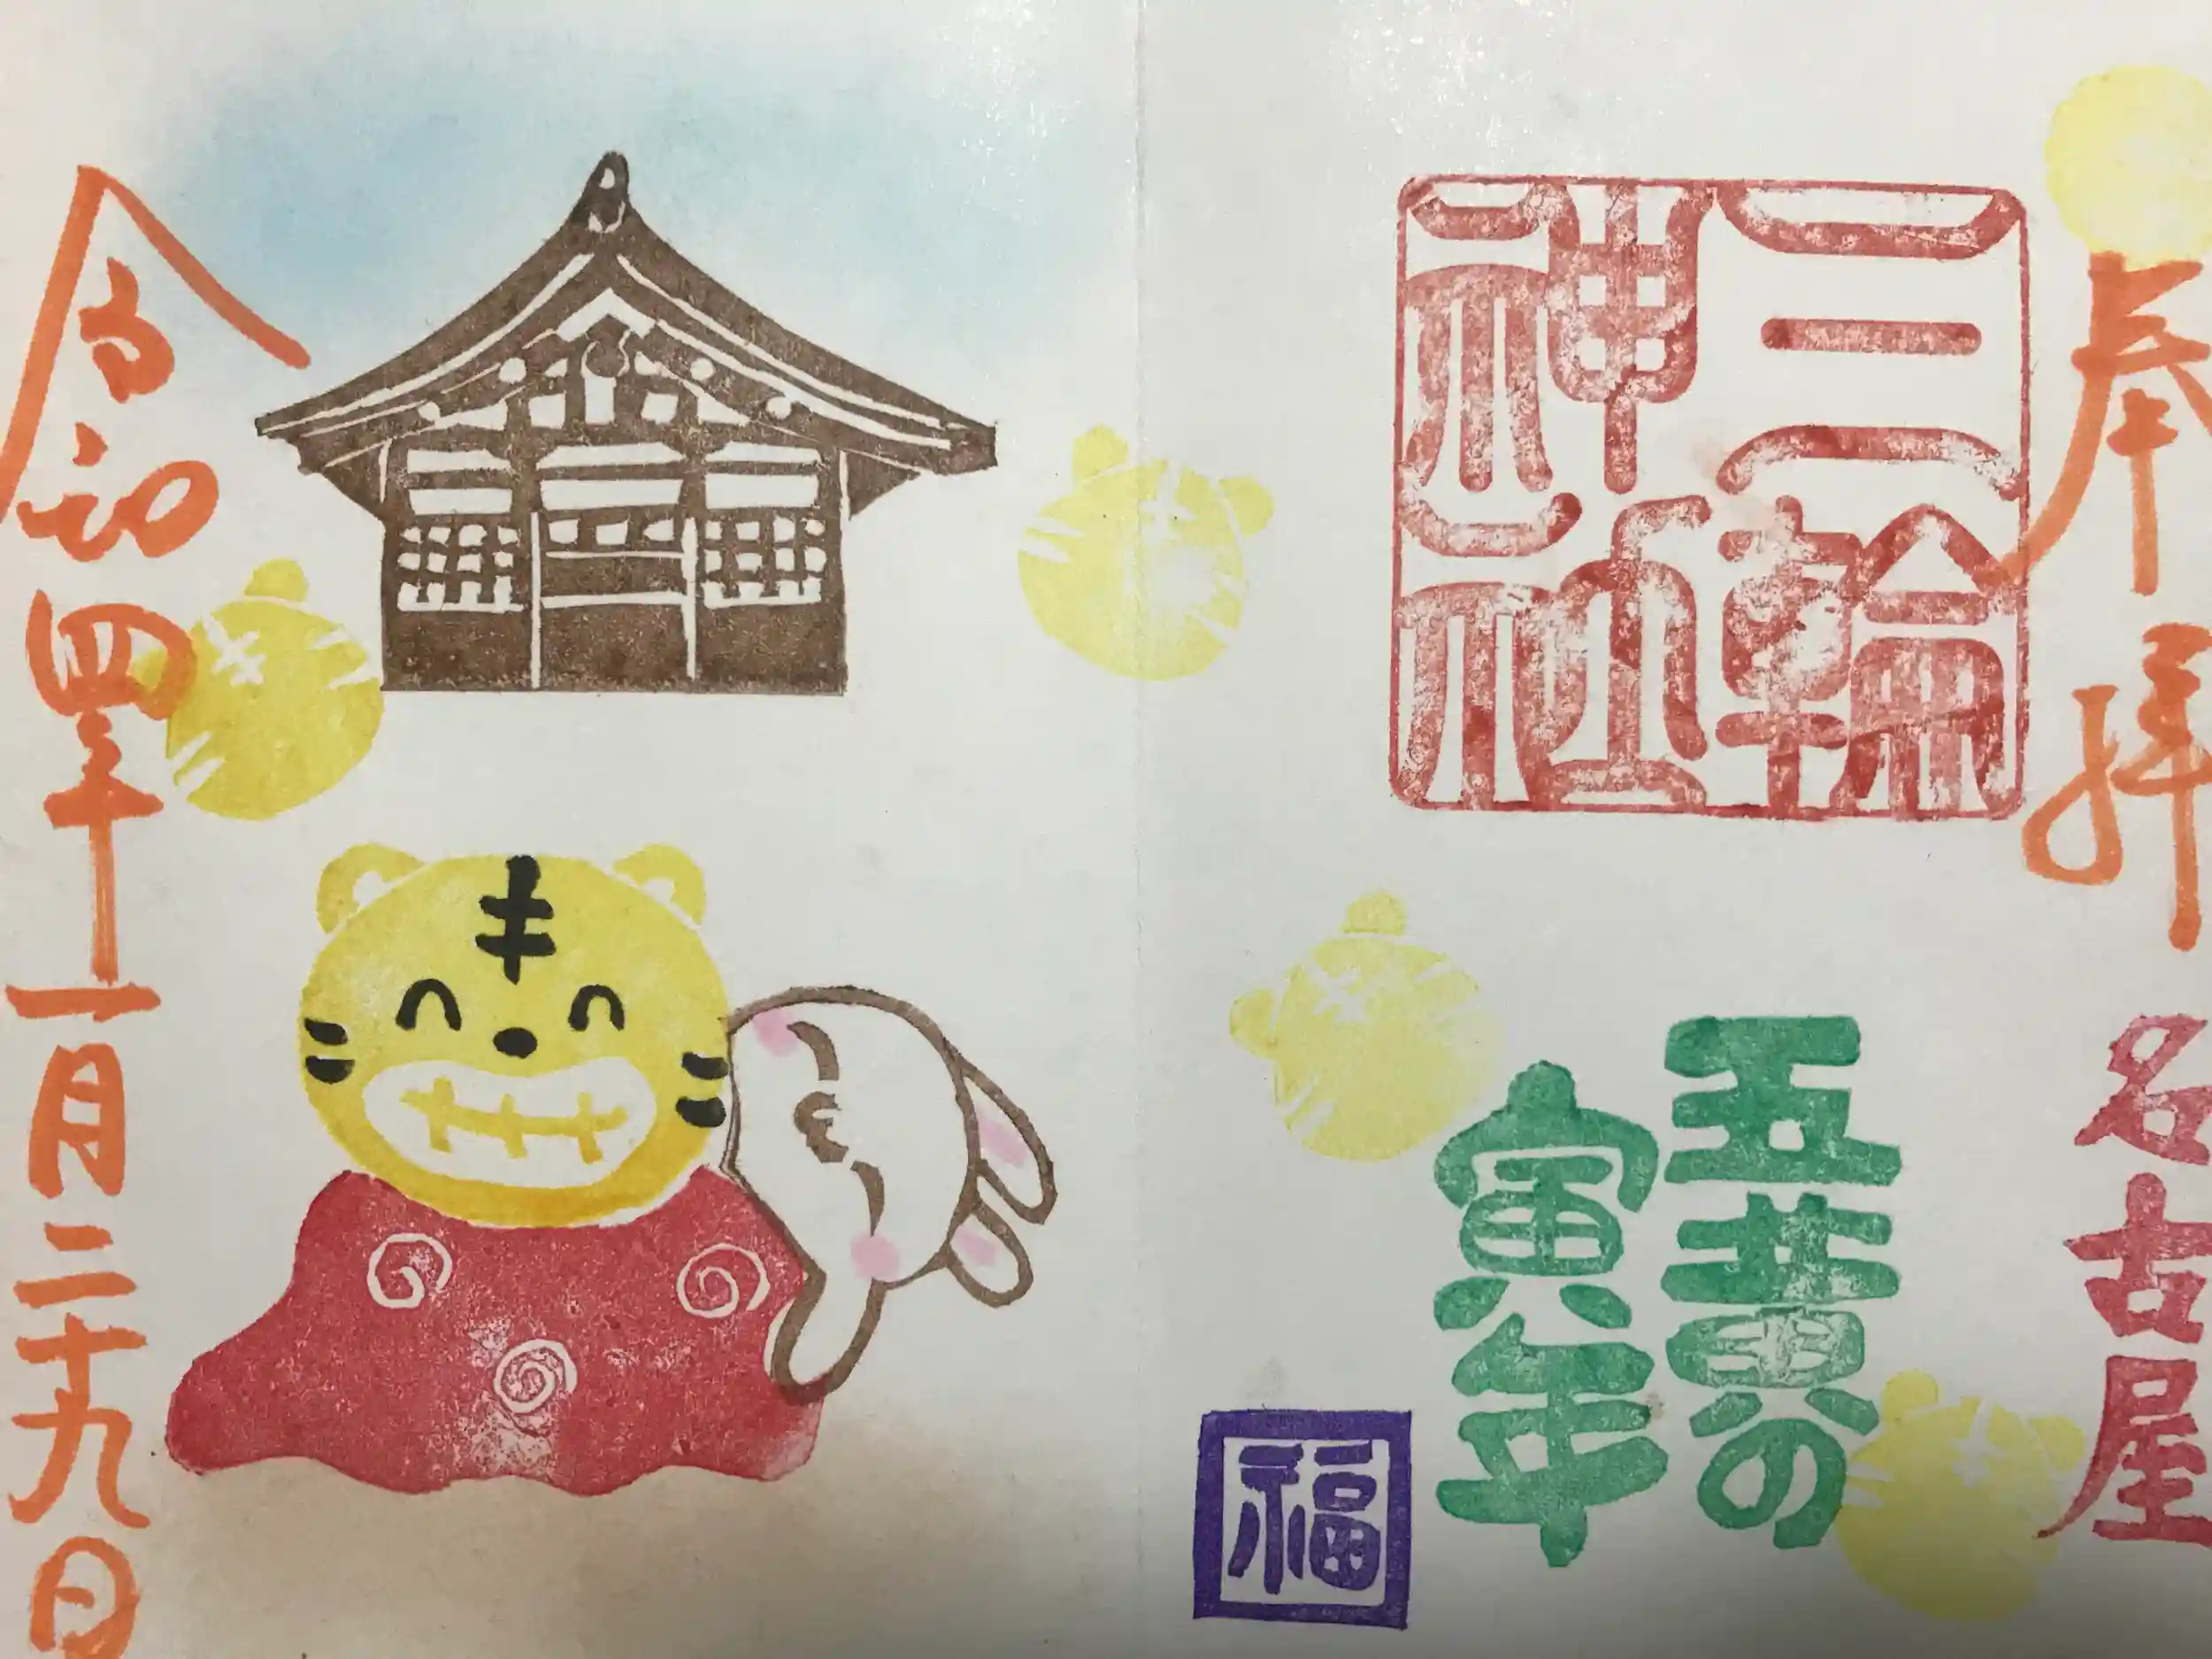 奉拝
名古屋
三輪
神社
五黄の
寅年
福
令和四年十一月二十九日